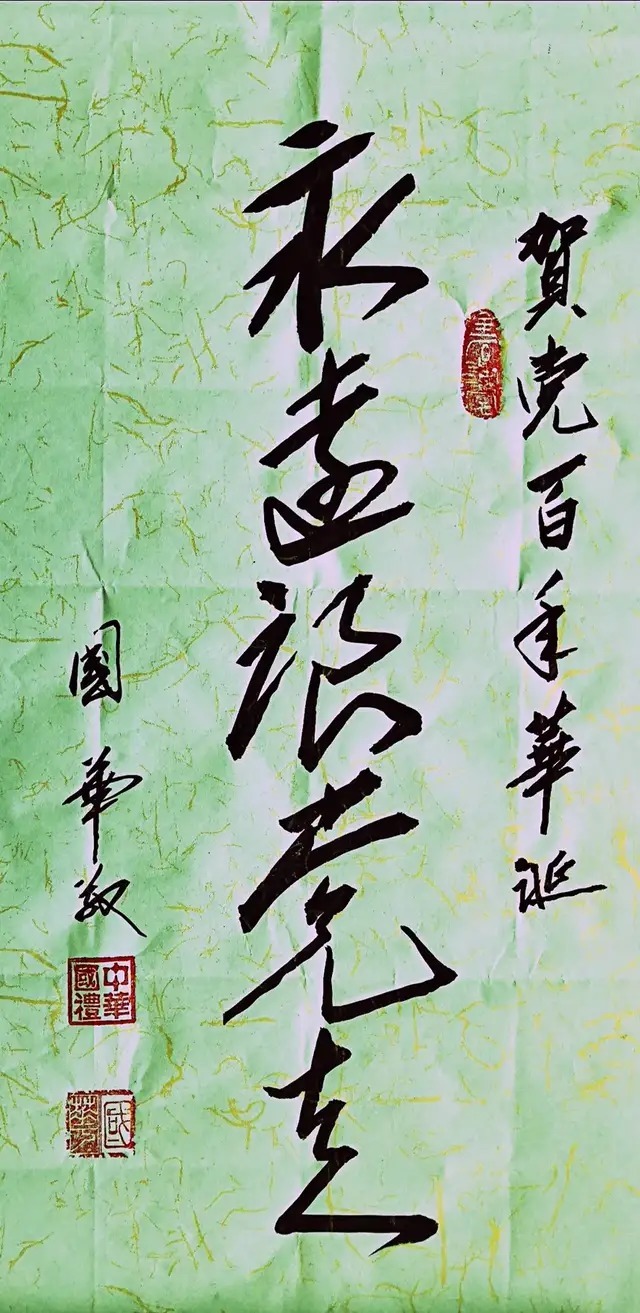 賀党百年華誕
永遠跟党走
國華敬
中華
國禮